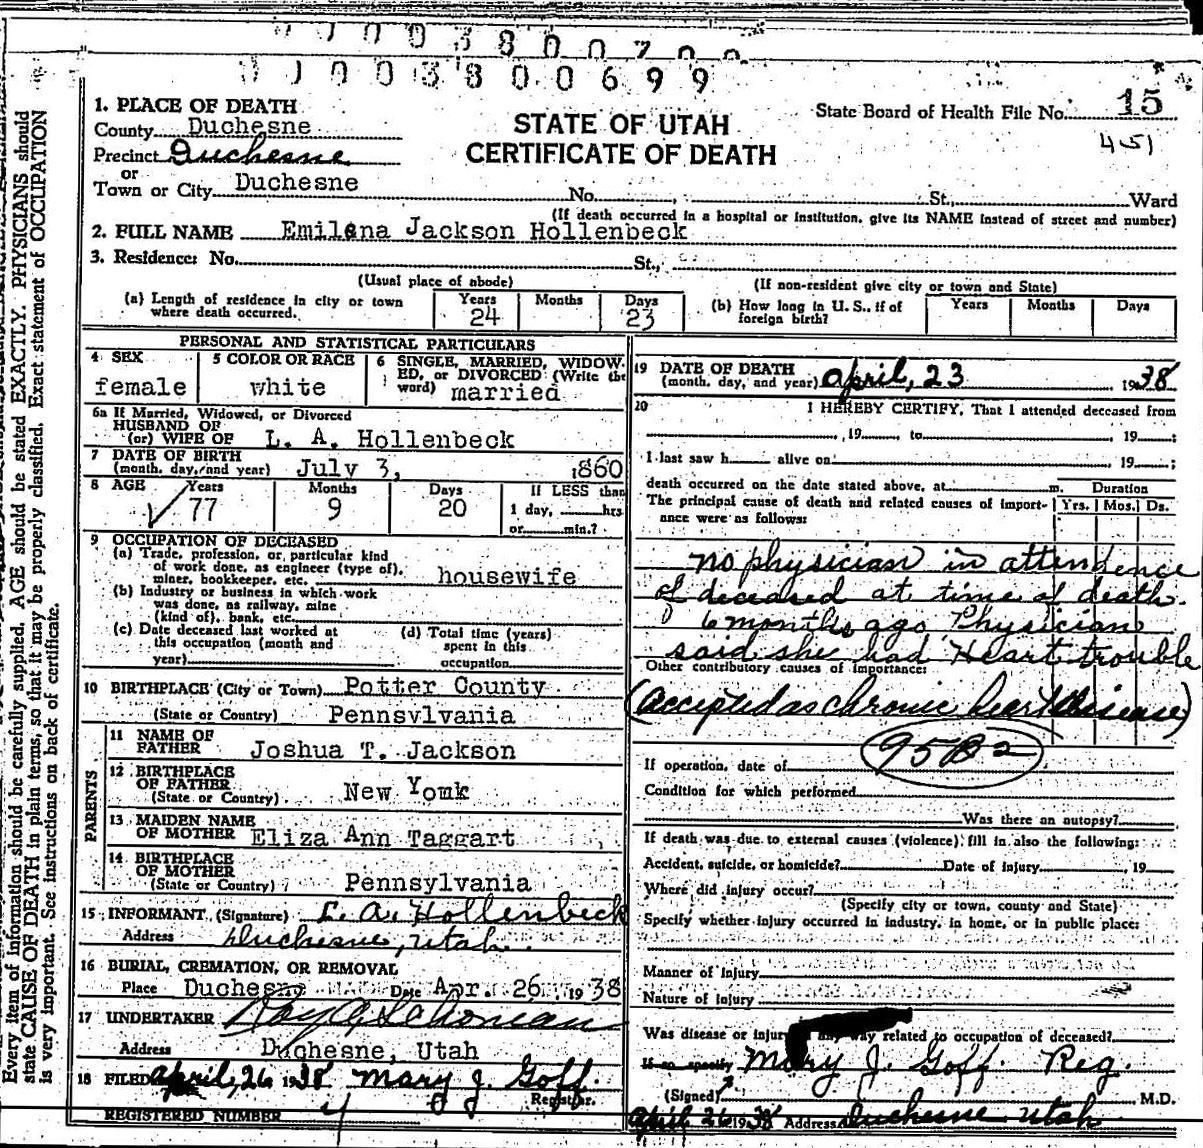 00380070
00380069 9
1. PLACE OF DEATH
County Duchesne
Precinct Duchesne
or
Town or City Duchesne No. St., Ward
STATE OF UTAH
CERTIFICATE OF DEATH
State Board of Health File No. 15
451
(If death occurred in a hospital or institution, give its NAME instead of street and number)
2. FULL NAME Emilena Jackson Hollenbeck
3. Residence: No. St.,
(Usual place of abode) (If non-resident give city or town and State)
(a) Length of residence in city or town where death occurred. Years 24 Months Days 23
(b) How long in U. S., if of foreign birth? Years Months Days
PERSONAL AND STATISTICAL PARTICULARS
4 SEX female
5 COLOR OR RACE white
6 SINGLE, MARRIED, WIDOWED, or DIVORCED (Write the word) married
6a If Married, Widowed, or Divorced
HUSBAND OF
(or) WIFE OF L. A. Hollenbeck
7 DATE OF BIRTH
(month, day, and year) July 3, 1860
8 AGE Years 77 Months 9 Days 20 If LESS than 1 day, hrs or min.?
9 OCCUPATION OF DECEASED
(a) Trade, profession, or particular kind
of work done, as engineer (type of),
miner, bookkeeper, etc. housewife
(b) Industry or business in which work
was done, as railway, mine
(kind of), bank, etc.
(c) Date deceased last worked at
this occupation (month and
year)
(d) Total time (years)
spent in this
occupation
10 BIRTHPLACE (City or Town) Potter County
(State or Country) Pennsylvania
PARENTS
11 NAME OF
FATHER Joshua T. Jackson
12 BIRTHPLACE
OF FATHER
(State or Country) New Yomk
13 MAIDEN NAME
OF MOTHER Eliza Ann Taggart
14 BIRTHPLACE
OF MOTHER
(State or Country) Pennsylvania
15 INFORMANT (Signature) L. A. Hollenbeck
Address Duchesne, Utah.
16 BURIAL, CREMATION, OR REMOVAL
Place Duchesne Date Apr. 26 1938
17 UNDERTAKER
Address Duchesne, Utah
18 FILED April, 26 1938 Mary J. Goff.
Registrar.
REGISTERED NUMBER 4
19 DATE OF DEATH
(month, day, and year) April, 23, 1938
20 I HEREBY CERTIFY, That I attended deceased from
, 19 , to , 19 ;
I last saw h alive on , 19 ;
death occurred on the date stated above, at m. Duration
The principal cause of death and related causes of import- Yrs. Mos. Ds.
ance were as follows:
no physician in attendence
of deceased at time of death.
6 months ago Physician
said she had Heart trouble
Other contributory causes of importance:
(accepted as chronic heart disease)
If operation, date of
Condition for which performed
Was there an autopsy?
If death was due to external causes (violence) fill in also the following:
Accident, suicide, or homicide? Date of injury , 19
Where did injury occur?
(Specify city or town, county and State)
Specify whether injury occurred in industry, in home, or in public place:
Manner of injury
Nature of injury
Was disease or injury way related to occupation of deceased?
If so specify Mary J. Goff Reg.
(Signed) M.D.
April 26 1938 Address Duchesne Utah
Every item of information should be carefully supplied. AGE should be stated EXACTLY. PHYSICIANS should
state CAUSE OF DEATH in plain terms, so that it may be properly classified. Exact statement of OCCUPATION
is very important. See instructions on back of certificate.